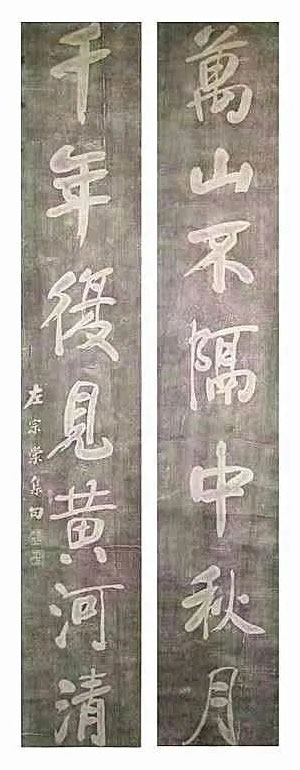 萬山不隔中秋月
千年復見黃河清
左宗棠集句